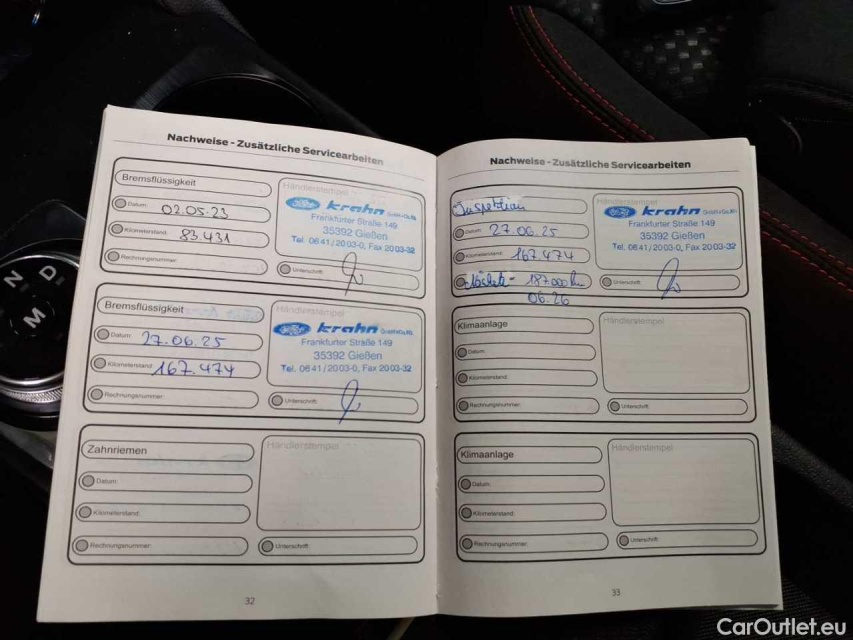 Nachweise - Zusätzliche Servicearbeiten
Bremsflüssigkeit
Händlerstempel
Datum: 02.05.23
Kilometerstand: 83.431
Rechnungsnummer:
Unterschrift:
Ford krahn GmbH&Co.KG
Frankfurter Straße 149
35392 Gießen
Tel. 0641/2003-0, Fax 2003-32
Bremsflüssigkeit
Händlerstempel
Datum: 27.06.25
Kilometerstand: 167.474
Rechnungsnummer:
Unterschrift:
Ford krahn GmbH&Co.KG
Frankfurter Straße 149
35392 Gießen
Tel. 0641/2003-0, Fax 2003-32
Zahnriemen
Händlerstempel
Datum:
Kilometerstand:
Rechnungsnummer:
Unterschrift:
32
Nachweise - Zusätzliche Servicearbeiten
Inspektion
Datum: 27.06.25
Kilometerstand: 167.474
Nächste - 187000 km
06.26
Unterschrift:
Ford krahn GmbH&Co.KG
Frankfurter Straße 149
35392 Gießen
Tel. 0641/2003-0, Fax 2003-32
Klimaanlage
Händlerstempel
Datum:
Kilometerstand:
Rechnungsnummer:
Unterschrift:
Klimaanlage
Händlerstempel
Datum:
Kilometerstand:
Rechnungsnummer:
Unterschrift:
33
N D
M
CarOutlet.eu